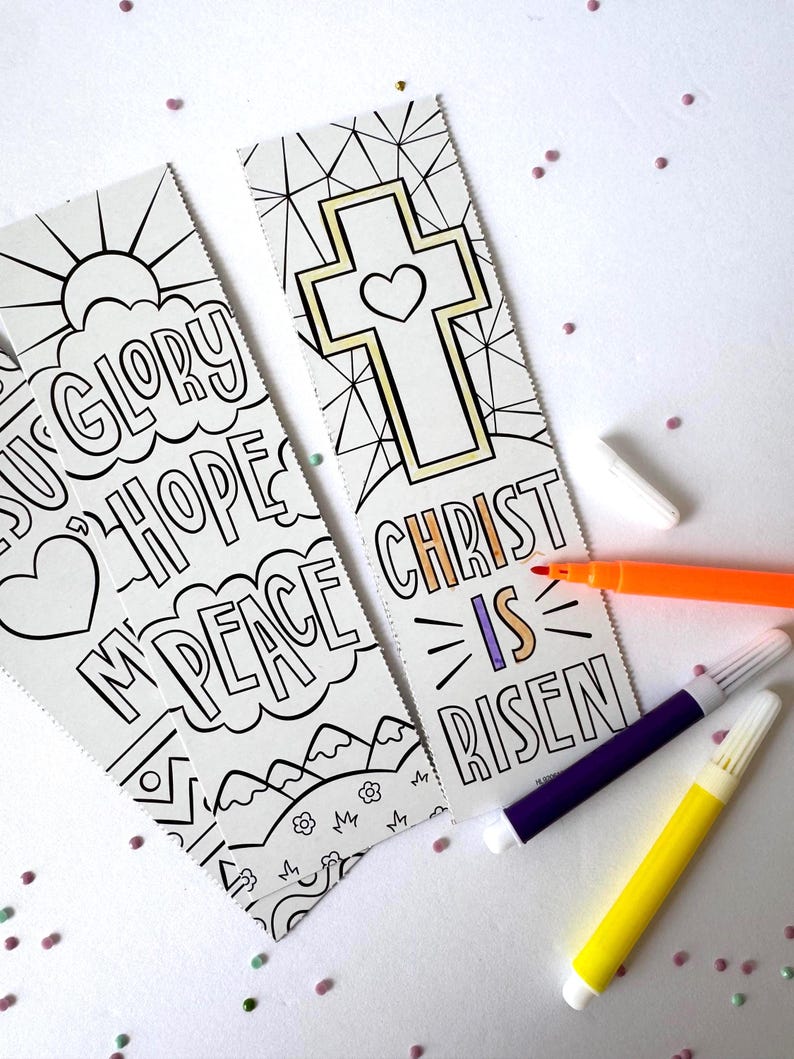 GLORY
HOPE
PEACE
CHRIST
IS
RISEN